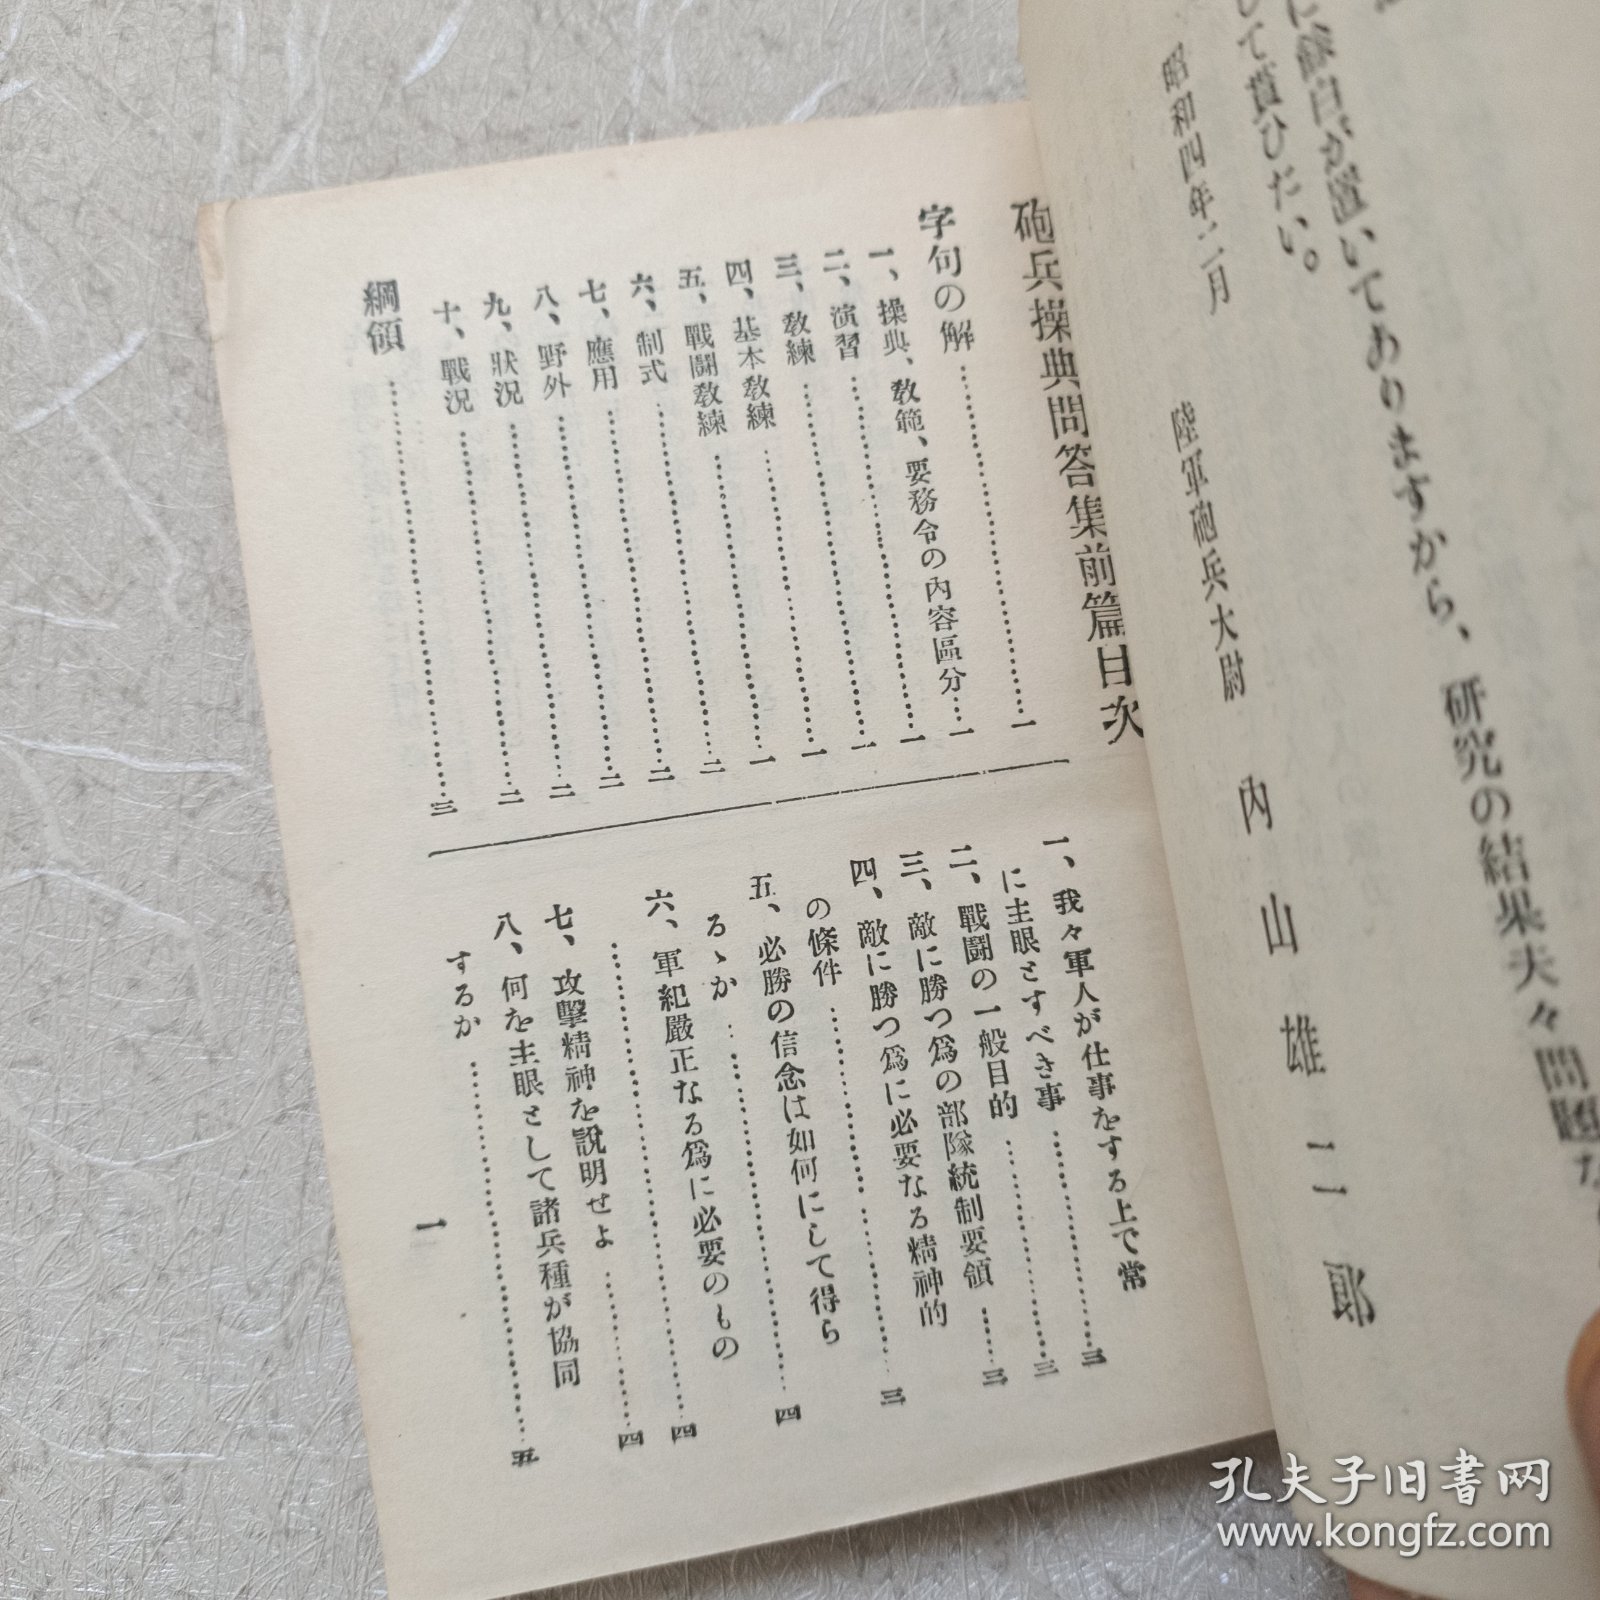 に餘白が置いてありますから、研究の結果夫々問題
して貰ひたい。
昭和四年二月
陸軍砲兵大尉 內山雄二郎
砲兵操典問答集前篇目次
字句の解…………一
一、操典、教範、要務令の內容區分…一
二、演習…………一
三、教練…………一
四、基本教練…………一
五、戰鬪教練…………二
六、制式…………二
七、應用…………二
八、野外…………二
九、狀況…………二
十、戰況…………二
綱領…………三
一、我々軍人が仕事をする上で常
に主眼とすべき事…………三
二、戰鬪の一般目的…………三
三、敵に勝つ爲の部隊統制要領……三
四、敵に勝つ爲に必要なる精神的
の條件…………三
五、必勝の信念は如何にして得ら
るゝか…………四
六、軍紀嚴正なる爲に必要のもの
…………四
七、攻擊精神を說明せよ……四
八、何を主眼として諸兵種が協同
するか…………五
一
孔夫子旧书网
www.kongfz.com